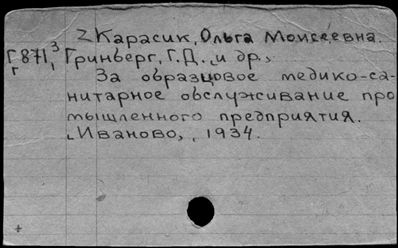 Карасик, Ольга Моисеевна.
Г871, Гринберг, Г.Д., и др.,
За образцовое медико-са-
нитарное обслуживание про
мышленного предприятия.
Иваново, 1934.